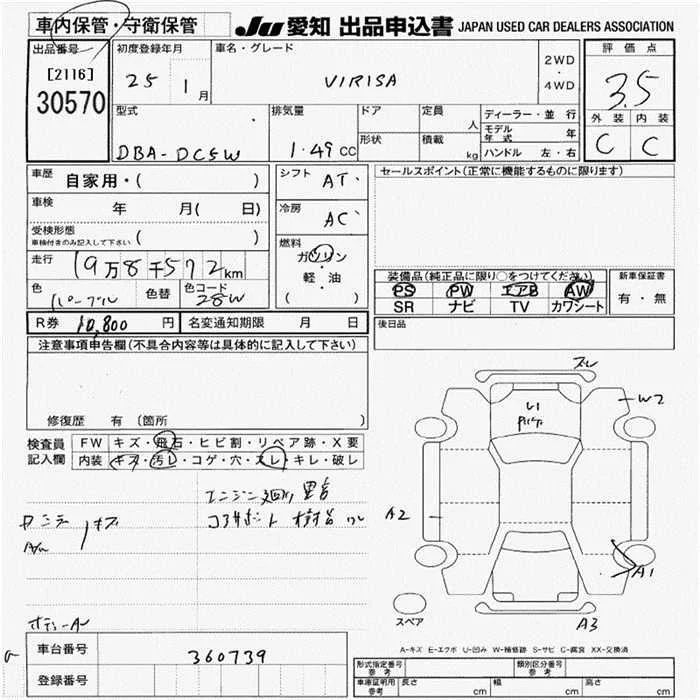 車内保管・守衛保管 JU 愛知 出品申込書 JAPAN USED CAR DEALERS ASSOCIATION
出品番号 初度登録年月 車名・グレード 2WD ・ 4WD 評価点
[2116] 25 1月 VIRISA 3.5
30570
型式 排気量 ドア 定員 人 ディーラー・並行 外装 内装
DBA-DC5W 1.49 CC 形状 積載 kg モデル年式 年 C C
ハンドル 左・右
車歴 自家用・( ) シフト AT・ セールスポイント(正常に機能するものに限ります)
車検 年 月( 日) 冷房 AC
受検形態 車検付きのみ記入して下さい ( ) 燃料
走行 19万8千572km ガソリン・軽・油 ( ) 装備品(純正品に限り○をつけてください) 新車保証書
色 パープル 色替 色コード 28W PS PW エアB AW 有・無
SR ナビ TV カワシート
R券 10,800 円 名変通知期限 月 日 後日品
注意事項申告欄(不具合内容等は具体的に記入して下さい)
ズレ
W2
U1
修復歴 有 〔箇所 〕
検査員記入欄 FW キズ・飛石・ヒビ割・リペア跡・X要
内装 キズ・汚レ・コゲ・穴・スレ・キレ・破レ
エンジン廻り
キズ A2
A1
A3
スペア
A-キズ E-エクボ U-凹み W-補修跡 S-サビ C-腐食 XX-交換済
車台番号 360739
登録番号
形式指定番号 参考 類別区分番号 参考
車庫証明用 参考 長さ cm 幅 cm 高さ cm